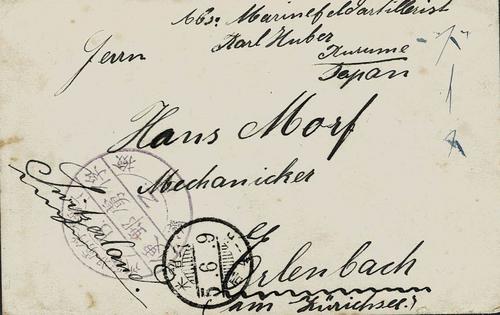 Abs: Marinefeldartillerist
Karl Huber
Kurume
Japan
Herrn
Hans Morf
Mechanicker
Erlenbach
(am Zürichsee.)
Switzerland
5.6.9